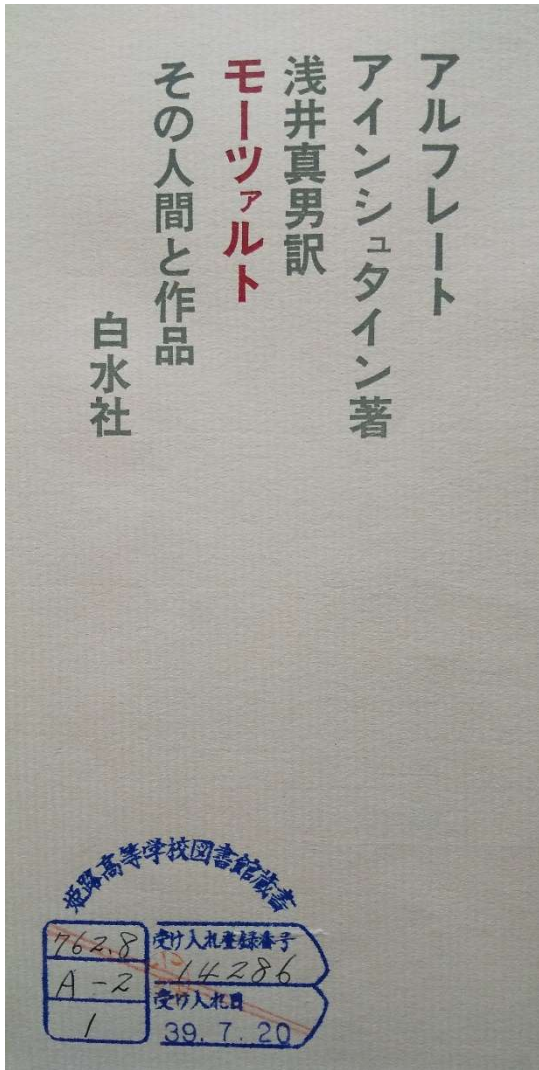 アルフレート
アインシュタイン著
浅井真男訳
モーツァルト
その人間と作品
白水社
姫路高等学校図書館蔵書
762.8
A-2
1
受け入れ登録番号
14286
受け入れ日
39.7.20